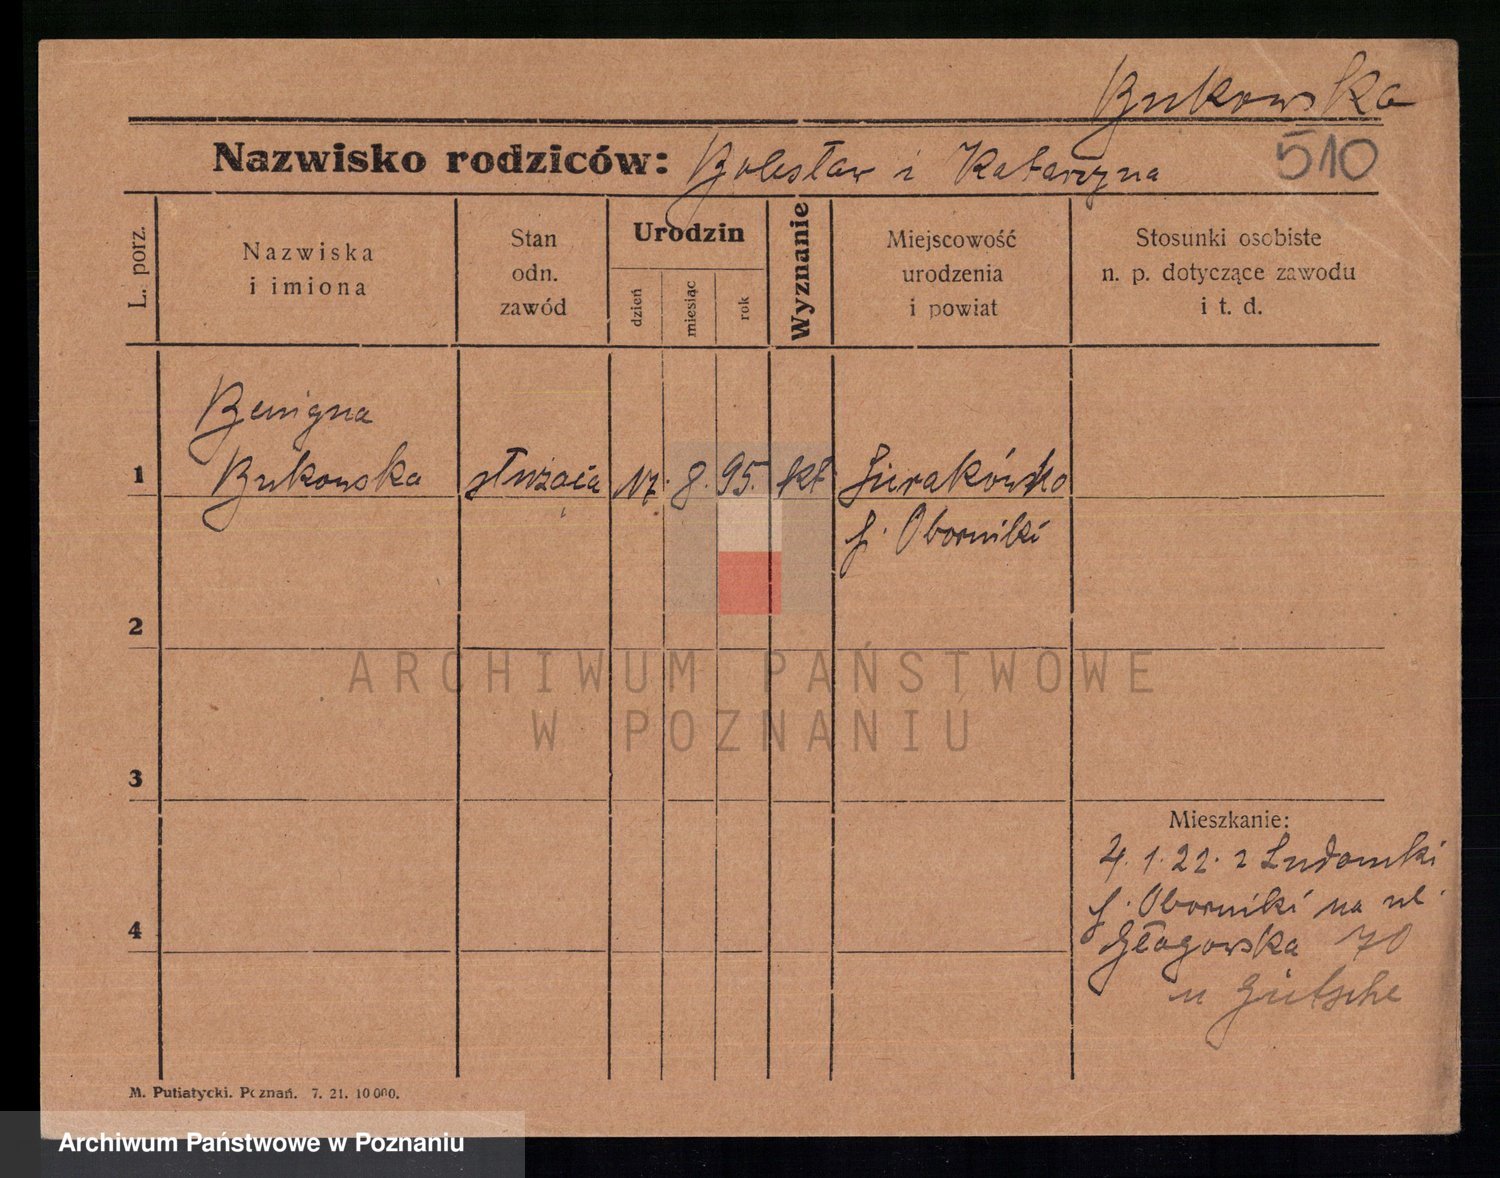 Bukowska
Nazwisko rodziców: Bolesław i Katarzyna
510
L. porz.
Nazwiska
i imiona
Stan
odn.
zawód
Urodzin
dzień
miesiąc
rok
Wyznanie
Miejscowość
urodzenia
i powiat
Stosunki osobiste
n. p. dotyczące zawodu
i t. d.
Benigna
1 Bukowska służąca 17. 8. 95. kt Sierakówko
p. Oborniki
2
3
4
ARCHIWUM PAŃSTWOWE
W POZNANIU
Mieszkanie:
4. 1. 22. z Ludomki
p. Oborniki na ul.
Głogowska 70
u Gütsche
M. Putiatycki. Poznań. 7. 21. 10 000.
Archiwum Państwowe w Poznaniu